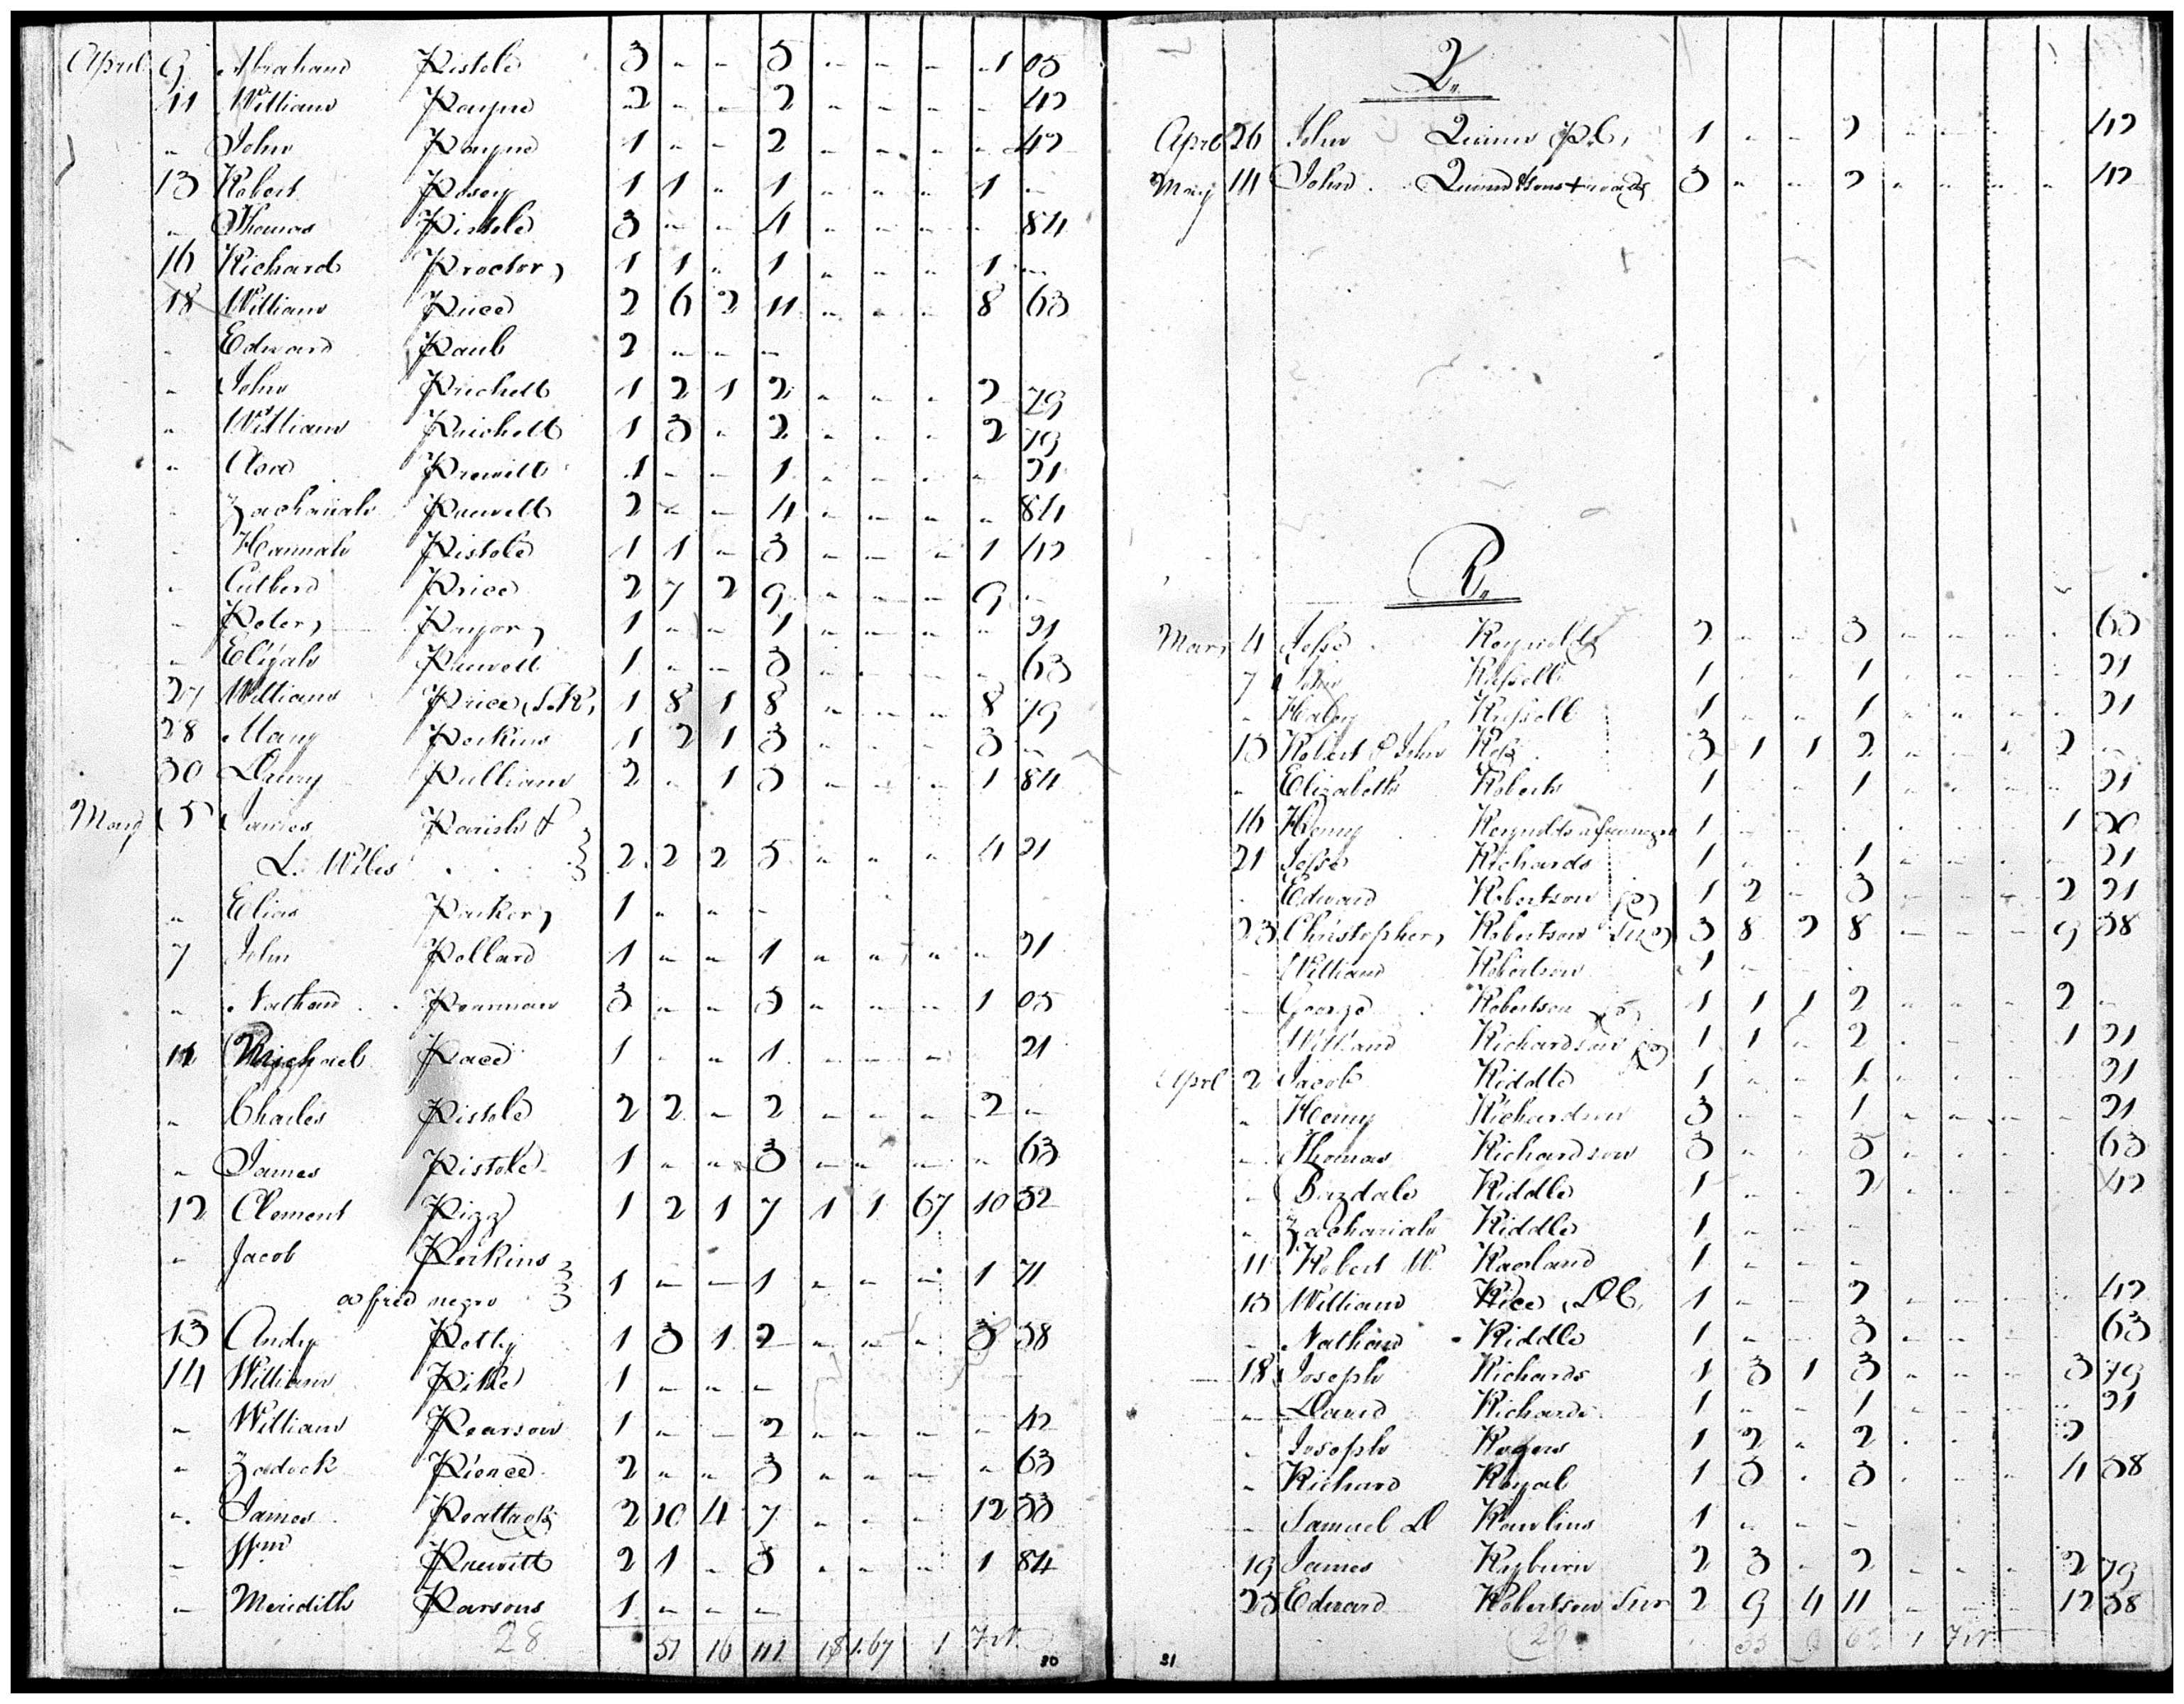 April 9 Abraham Pistole 3 " " 5 " " " 1 05
11 William Payne 2 " " 2 " " " " 42
" John Payne 1 " " 2 " " " " 42
13 Robert Posey 1 1 " 1 " " " 1 "
" Thomas Pistole 3 " " 4 " " " " 84
16 Richard Proctor 1 1 " 1 " " " 1 "
18 William Price 2 6 2 11 " " " 8 63
" Edward Paub 2 " " "
" John Prichett 1 2 1 2 " " " 2 79
" William Prichett 1 3 " 2 " " " 2 79
" Asa Prewitt 1 " " 1 " " " " 21
" Zachariah Prewett 2 " " 4 " " " " 84
" Hannah Pistole 1 1 " 3 " " " 1 42
" Cutberd Price 2 7 2 9 " " " 9 "
" Peter Pryor 1 " " 1 " " " " 21
" Elijah Prewett 1 " " 3 " " " " 63
27 William Price, S.R, 1 8 1 8 " " " 8 79
28 Mary Perkins 1 2 1 3 " " " 3 "
30 Drury Pulliam 2 " 1 3 " " " 1 84
May 5 James Parish &
L. Wiles 2 2 2 5 " " " 4 21
" Elias Parker 1 " " "
7 John Pollard 1 " " 1 " " " " 21
" Nathan Pearman 3 " " 5 " " " 1 05
11 Michael Pace 1 " " 1 " " " 21
" Charles Pistole 2 2 " 2 " " " 2 "
" James Pistole 1 " " 3 " " " " 63
12 Clement Pigg 1 2 1 7 1 1 67 10 52
" Jacob Perkins
a free negro 1 " " 1 " " " 1 71
13 Andy Petty 1 3 1 2 " " " 3 38
14 William Pike 1 " " "
" William Pearson 1 " " 2 " " " " 42
" Zadock Pierce 2 " " 3 " " " " 63
" James 2 10 4 7 " " " 12 33
" Wm Prewitt 2 1 " 3 " " " 1 84
" Meridith Parsons 1 " " "
28 51 16 111 1 67 1
30
Q.
April 26 John Quinn P.C, 1 " " 2 " " " " 42
May 14 John Quinn 3 " " 2 " " " " 42
R.
Mar 4 Jesse Reynolds 2 " " 3 " " " " 63
7 John Russell 1 " " 1 " " " " 21
" Haley Russell 1 " " 1 " " " " 21
13 Robert & John Ross 3 1 1 2 " " " 2 "
" Elizabeth Roberts 1 " " 1 " " " " 21
16 Henry Reynolds a free negro 1 " " " 1 50
21 Jesse Richards 1 " " 1 " " " " 21
" Edward Robertson 1 2 " 3 " " " 2 21
23 Christopher Robertson 3 8 2 8 " " " 9 38
" William Robertson 1 " "
" George Robertson 1 1 1 2 " " " 2 "
William Richardson 1 1 " 2 " " " 1 21
April 2 Jacob Riddle 1 " " 1 " " " " 21
" Henry Richardson 3 " " 1 " " " " 21
" Thomas Richardson 3 " " 3 " " " " 63
" Bazdale Riddle 1 " " 2 " " " " 42
" Zachariah Riddle 1 " " "
11 Robert W. Ragland 1 " " "
13 William Rice, D.C, 1 " " 2 " " " " 42
" Nathan Riddle 1 " " 3 " " " " 63
18 Joseph Richards 1 3 1 3 " " " 3 79
" David Richards 1 " " 1 " " " " 21
" Joseph Rogers 1 2 " 2 " " " 2
" Richard Royal 1 3 " 3 " " " 4 58
" Samuel D Rawlins 1 " " "
19 James Ryburn 2 3 " 2 " " " 2 79
25 Edward Robertson Snr 2 9 4 11 " " " 12 38
29
31